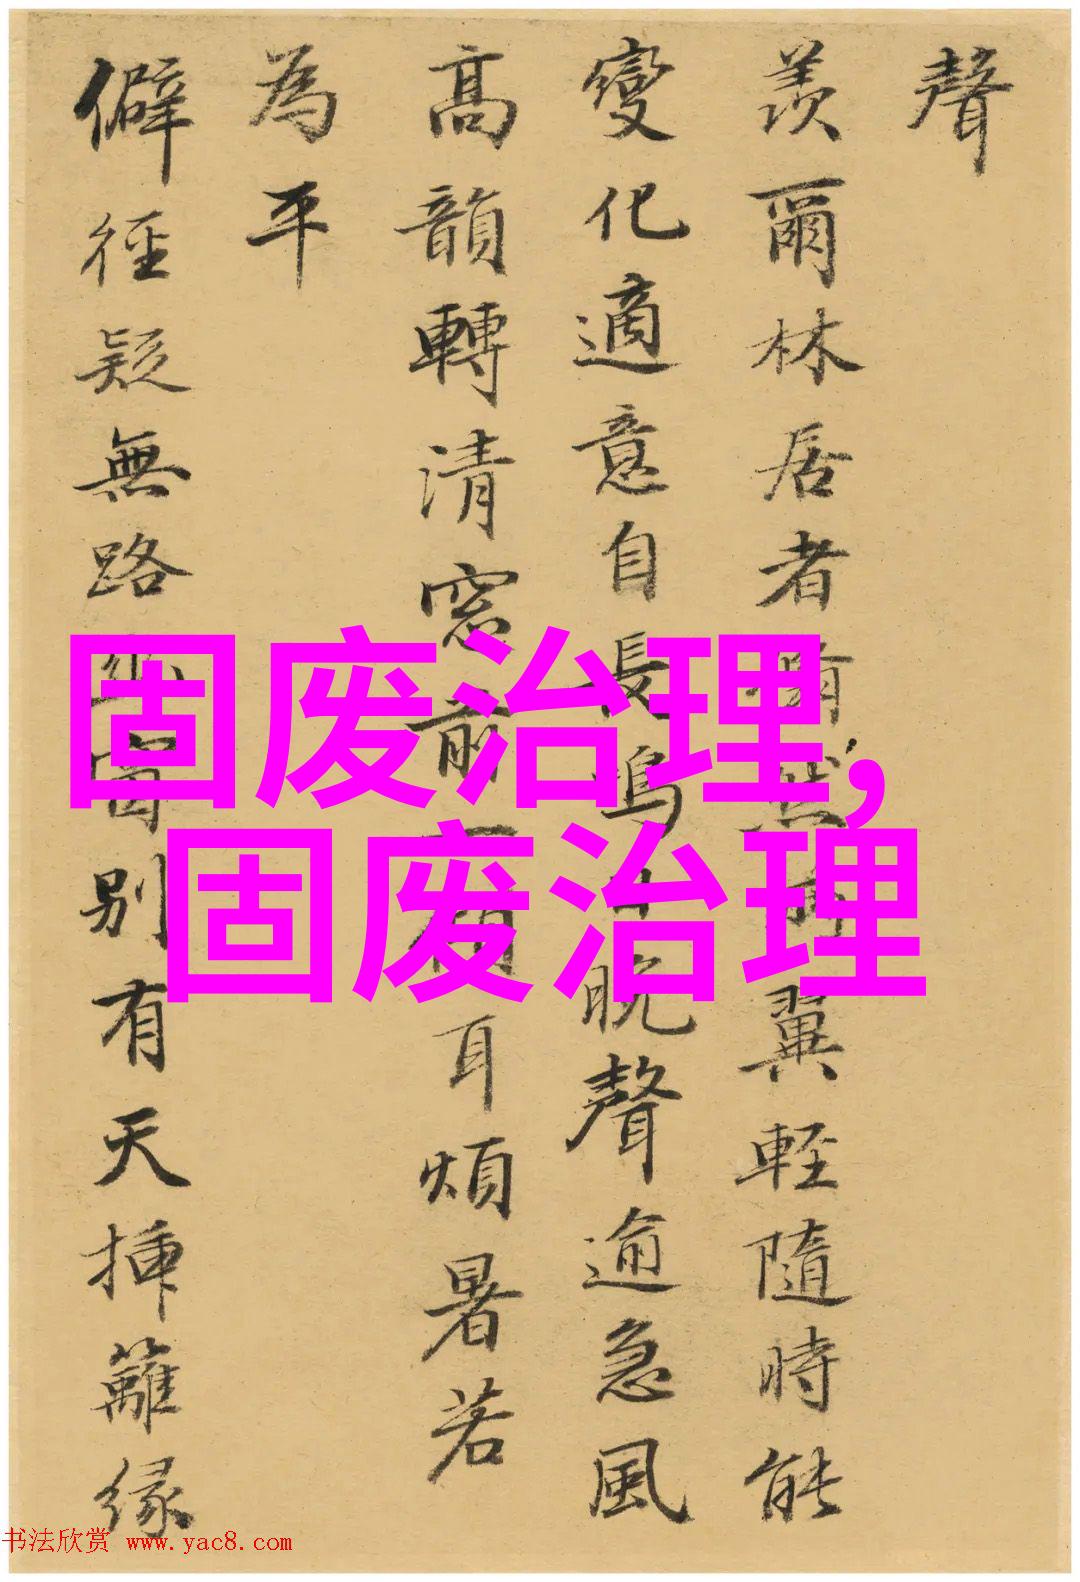 聲
羨爾林居者然翼輕隨時能
變化適意自長鳴晚聲逾急風
高韻轉清窓前耳煩暑若
為平
僻徑疑無路別有天插籬緣
固废治理,
固废治理
书法欣赏 www.yac8.com